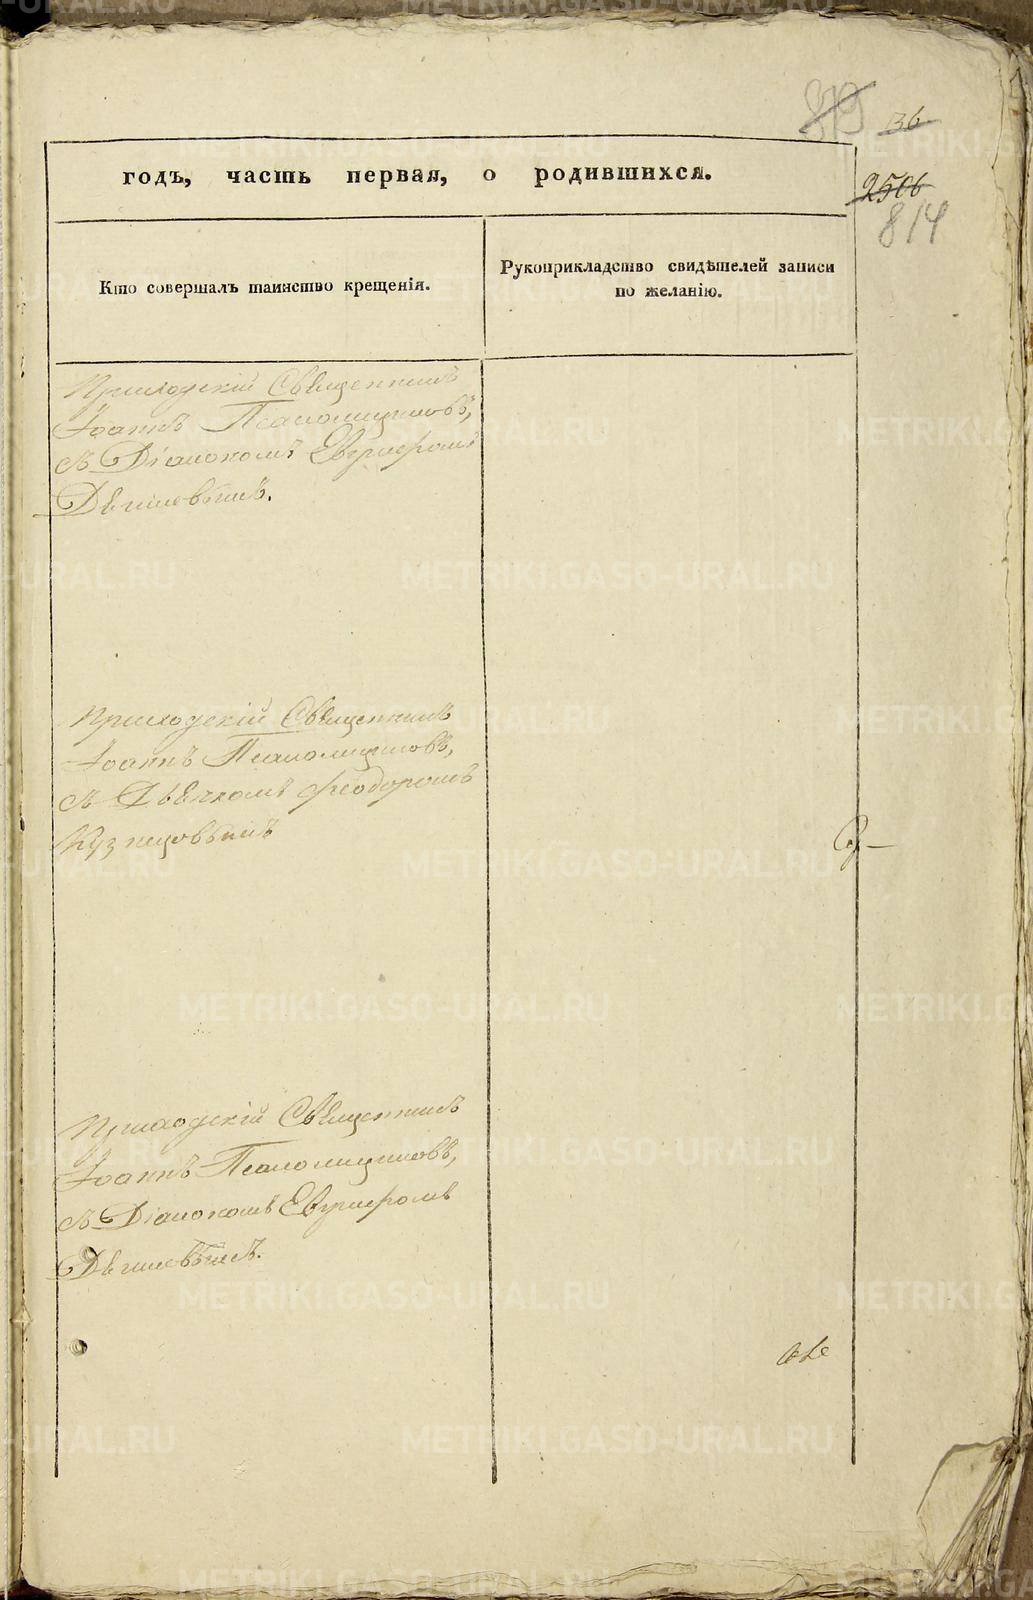 819 36
годъ, часть первая, о родившихся.
2506
814
Кто совершалъ таинство крещенія.
Рукоприкладство свидѣтелей записи
по желанію.
Приходскій Священникъ
Іоаннъ Псаломщиковъ,
съ Діакономъ Евгнiфромъ
Дѣгилевымъ.
Приходскій Священникъ
Іоаннъ Псаломщиковъ,
съ Дьячкомъ Феодоромъ
Кузнецовымъ
Приходскій Священникъ
Іоаннъ Псаломщиковъ,
съ Діакономъ
METRIKI.GASO-URAL.RU